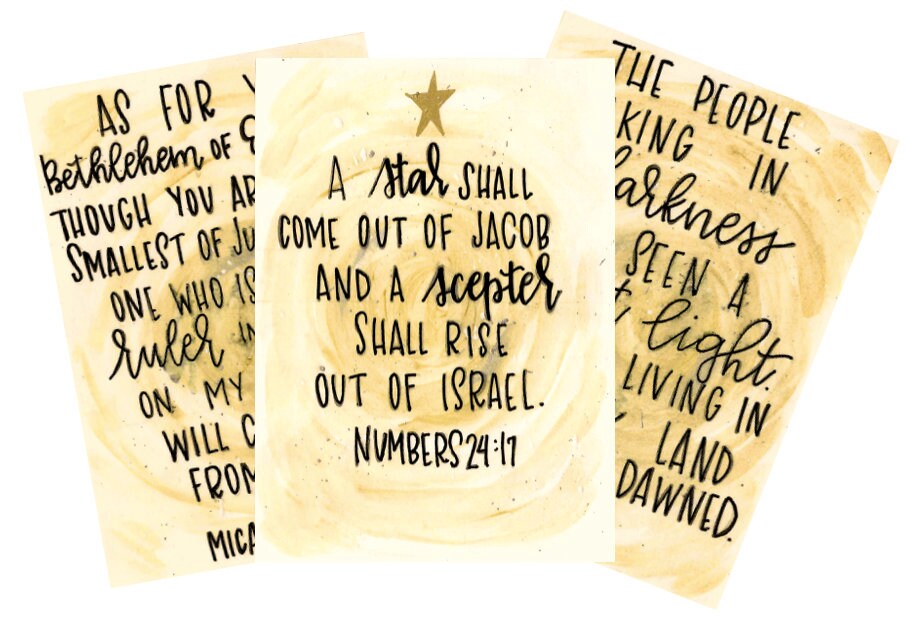 AS FOR
Bethlehem OF
THOUGH YOU
SMALLEST OF
ONE WHO
ruler
ON MY
WILL
A star SHALL
COME OUT OF JACOB
AND A scepter
SHALL RISE
OUT OF ISRAEL.
NUMBERS 24:17
THE PEOPLE
IN
SEEN A
light.
LIVING IN
LAND
DAWNED.